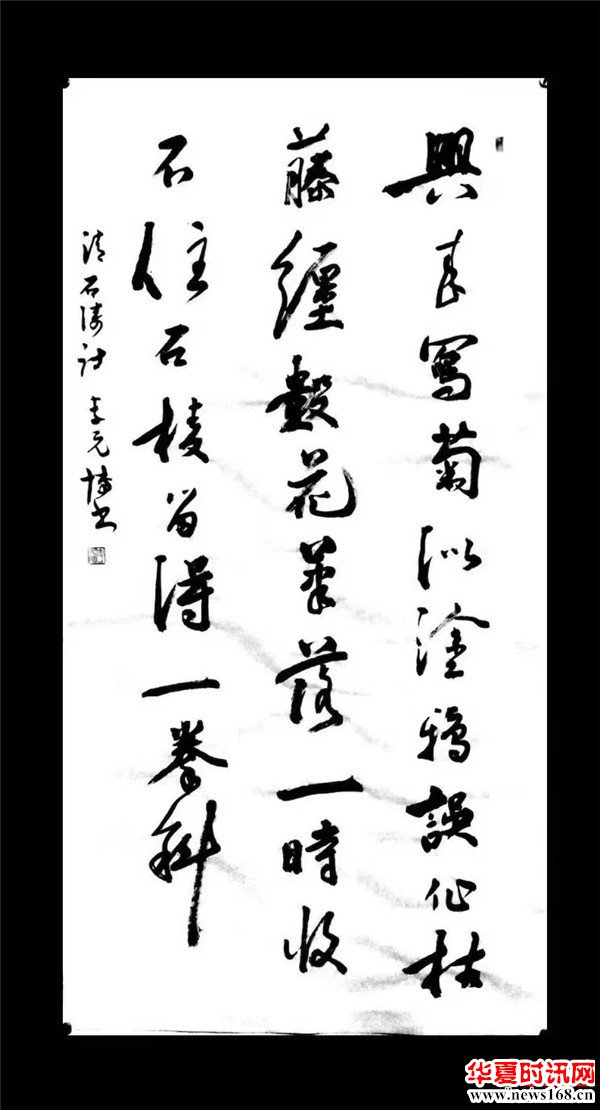 興来寫菊似塗鴉誤作枯
藤纏數花筆落一時收
不住石棱留得一拳斜
清石涛诗 李元书
华夏时讯网
www.news168.cn